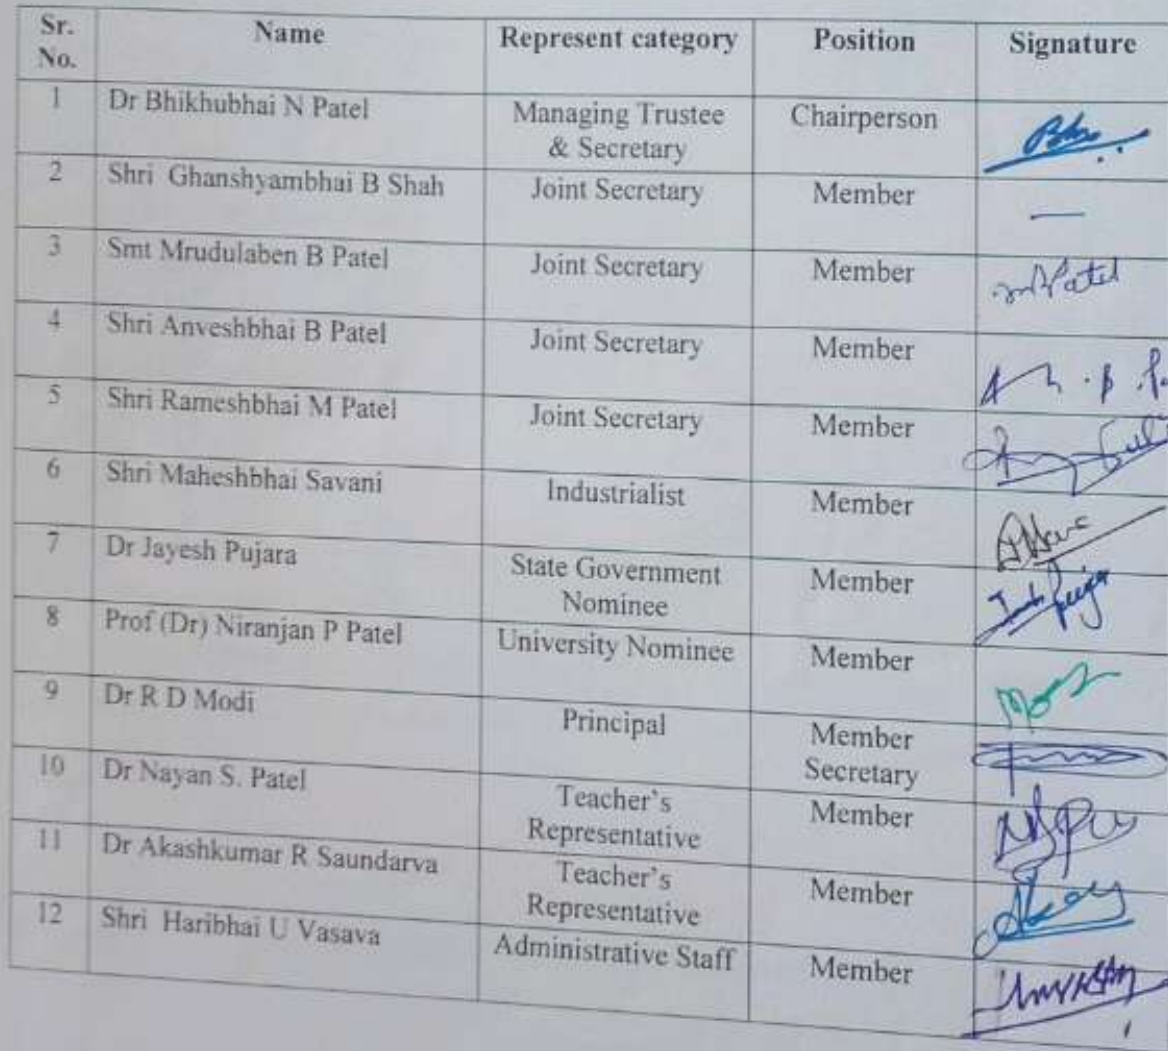 Sr. No. Name Represent category Position Signature
1 Dr Bhikhubhai N Patel Managing Trustee & Secretary Chairperson
2 Shri Ghanshyambhai B Shah Joint Secretary Member —
3 Smt Mrudulaben B Patel Joint Secretary Member mBPatel
4 Shri Anveshbhai B Patel Joint Secretary Member
5 Shri Rameshbhai M Patel Joint Secretary Member
6 Shri Maheshbhai Savani Industrialist Member
7 Dr Jayesh Pujara State Government Nominee Member
8 Prof (Dr) Niranjan P Patel University Nominee Member
9 Dr R D Modi Principal Member Secretary
10 Dr Nayan S. Patel Teacher's Representative Member
11 Dr Akashkumar R Saundarva Teacher's Representative Member
12 Shri Haribhai U Vasava Administrative Staff Member